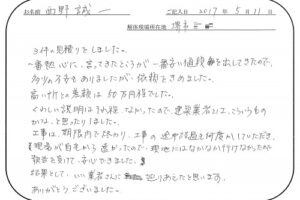 お名前 西野 誠一 ご記入日 2017年5月11日
解体現場所在地 堺市
3件の見積りをしました。
一番熱心に、言ってきたところが一番安い値段を出してきたので、
多少の不安もありましたが、依頼をきめました。
高い所との差額は50万円程でした。
くわしい説明はそれ程、なかったので、建築業者とは、こういうもの
かな、と思ったりしました。
工事は、期限内で終わり、工事の途中経過を何度か いただき、
現場が自宅から遠かったので、現地にはなかなか行けなかったが
報告を受けて、安心できました。
結果として、いい業者さんに 巡りあえたと思います。
ありがとうございました。